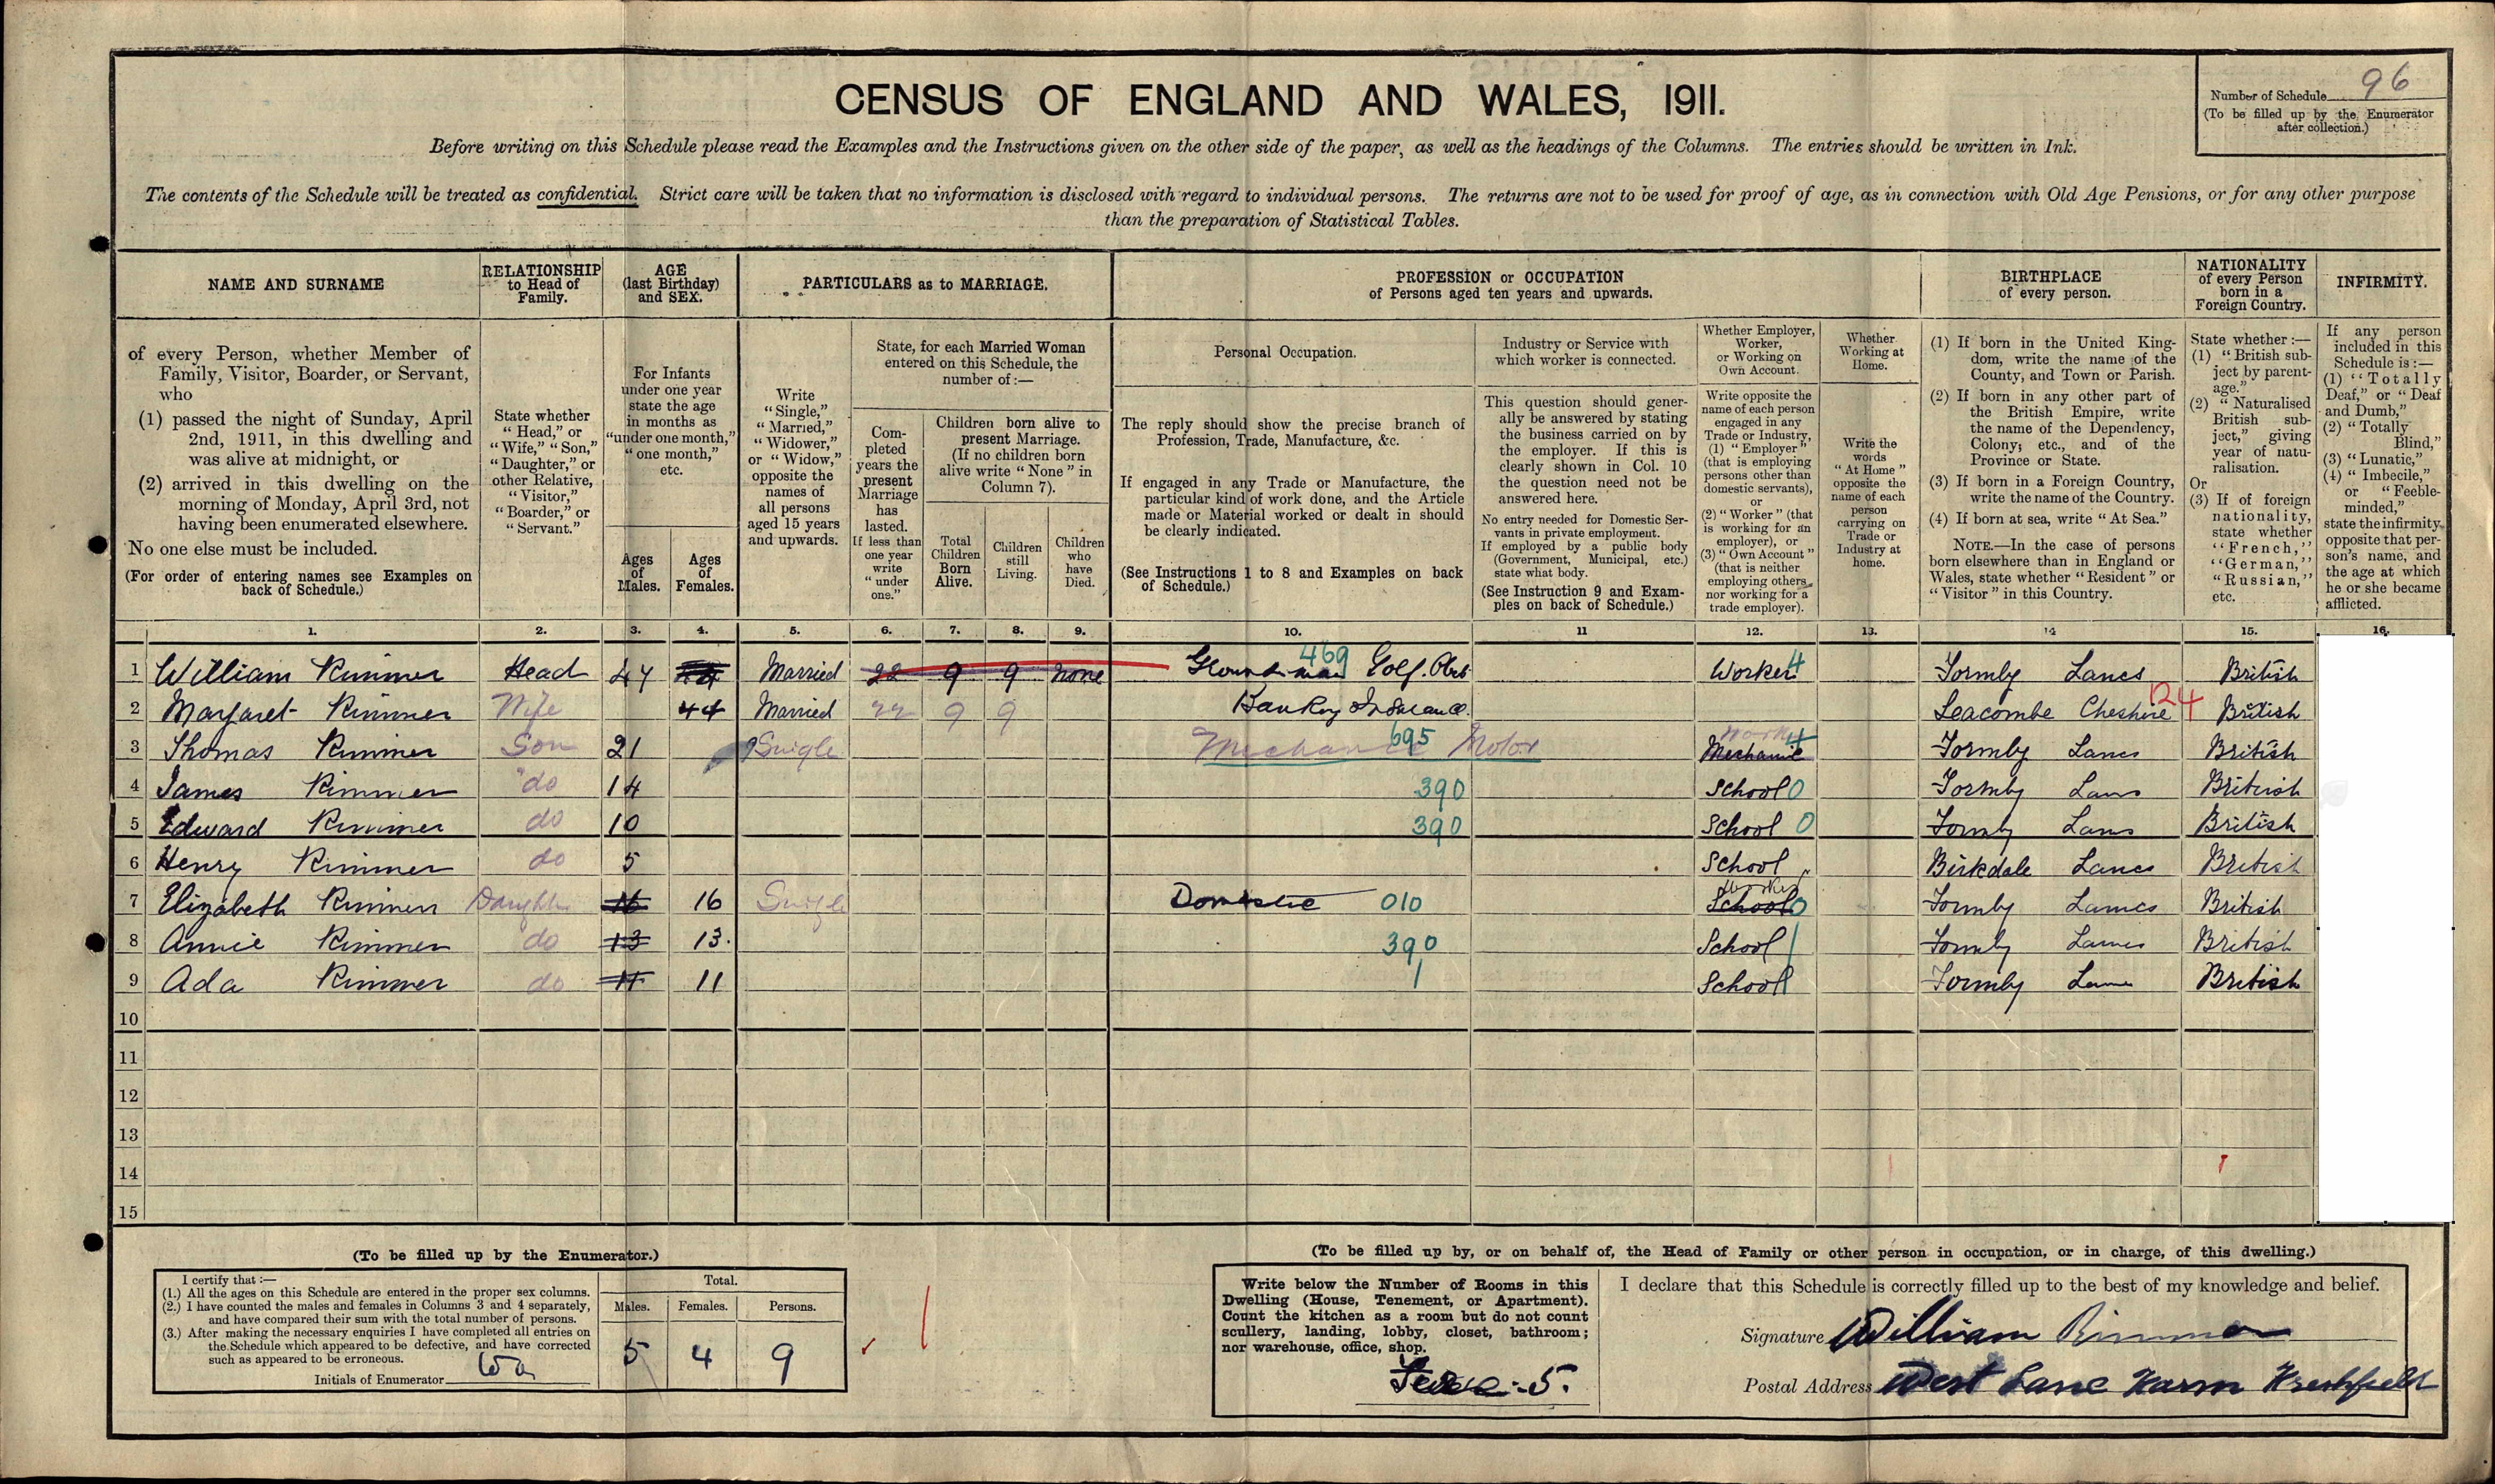 CENSUS OF ENGLAND AND WALES, 1911.
Number of Schedule 96
(To be filled up by the Enumerator after collection.)
Before writing on this Schedule please read the Examples and the Instructions given on the other side of the paper, as well as the headings of the Columns. The entries should be written in Ink.
The contents of the Schedule will be treated as confidential. Strict care will be taken that no information is disclosed with regard to individual persons. The returns are not to be used for proof of age, as in connection with Old Age Pensions, or for any other purpose
than the preparation of Statistical Tables.
NAME AND SURNAME
RELATIONSHIP to Head of Family.
AGE (last Birthday) and SEX.
PARTICULARS as to MARRIAGE.
PROFESSION or OCCUPATION of Persons aged ten years and upwards.
BIRTHPLACE of every person.
NATIONALITY of every Person born in a Foreign Country.
INFIRMITY.
of every Person, whether Member of Family, Visitor, Boarder, or Servant, who
(1) passed the night of Sunday, April 2nd, 1911, in this dwelling and was alive at midnight, or
(2) arrived in this dwelling on the morning of Monday, April 3rd, not having been enumerated elsewhere.
No one else must be included.
(For order of entering names see Examples on back of Schedule.)
State whether "Head," or "Wife," "Son," "Daughter," or other Relative, "Visitor," "Boarder," or "Servant."
For Infants under one year state the age in months as "under one month," "one month," etc.
Ages of Males.
Ages of Females.
Write "Single," "Married," "Widower," or "Widow," opposite the names of all persons aged 15 years and upwards.
State, for each Married Woman entered on this Schedule, the number of:—
Completed years the present Marriage has lasted. If less than one year write "under one."
Children born alive to present Marriage. (If no children born alive write "None" in Column 7).
Total Children Born Alive.
Children still Living.
Children who have Died.
Personal Occupation.
The reply should show the precise branch of Profession, Trade, Manufacture, &c.
If engaged in any Trade or Manufacture, the particular kind of work done, and the Article made or Material worked or dealt in should be clearly indicated.
(See Instructions 1 to 8 and Examples on back of Schedule.)
Industry or Service with which worker is connected.
This question should generally be answered by stating the business carried on by the employer. If this is clearly shown in Col. 10 the question need not be answered here.
No entry needed for Domestic Servants in private employment. If employed by a public body (Government, Municipal, etc.) state what body.
(See Instruction 9 and Examples on back of Schedule.)
Whether Employer, Worker, or Working on Own Account.
Write opposite the name of each person engaged in any Trade or Industry, (1) "Employer" (that is employing persons other than domestic servants), or (2) "Worker" (that is working for an employer), or (3) "Own Account" (that is neither employing others nor working for a trade employer).
Whether Working at Home.
Write the words "At Home" opposite the name of each person carrying on Trade or Industry at home.
(1) If born in the United Kingdom, write the name of the County, and Town or Parish.
(2) If born in any other part of the British Empire, write the name of the Dependency, Colony, etc., and of the Province or State.
(3) If born in a Foreign Country, write the name of the Country.
(4) If born at sea, write "At Sea."
NOTE.—In the case of persons born elsewhere than in England or Wales, state whether "Resident" or "Visitor" in this Country.
State whether:— (1) "British subject by parentage." (2) "Naturalised British subject," giving year of naturalisation. Or (3) If of foreign nationality, state whether "French," "German," "Russian," etc.
If any person included in this Schedule is:— (1) "Totally Deaf," or "Deaf and Dumb," (2) "Totally Blind," (3) "Lunatic," (4) "Imbecile," or "Feeble-minded," state the infirmity opposite that person's name, and the age at which he or she became afflicted.
1. 2. 3. 4. 5. 6. 7. 8. 9. 10. 11 12. 13. 14 15. 16.
1 William Rimmer Head 47 44 Married 22 9 9 none 469 Groundsman Golf Worker 4 Formby Lancs British
2 Margaret Rimmer Wife 44 Married 22 9 9 Seacombe Cheshire 124 British
3 Thomas Rimmer Son 21 Single Mechanic 695 Motor Worker Mechanic 4 Formby Lancs British
4 James Rimmer do 14 390 School 0 Formby Lancs British
5 Edward Rimmer do 10 390 School 0 Formby Lancs British
6 Henry Rimmer do 5 School Birkdale Lancs British
7 Elizabeth Rimmer Daughter 16 16 Single Domestic 010 Worker School 0 Formby Lancs British
8 Annie Rimmer do 13 13. 390 School 1 Formby Lancs British
9 Ada Rimmer do 11 11 1 School 1 Formby Lancs British
10
11
12
13
14
15
(To be filled up by the Enumerator.)
I certify that:—
(1.) All the ages on this Schedule are entered in the proper sex columns.
(2.) I have counted the males and females in Columns 3 and 4 separately, and have compared their sum with the total number of persons.
(3.) After making the necessary enquiries I have completed all entries on the Schedule which appeared to be defective, and have corrected such as appeared to be erroneous.
Initials of Enumerator
Total.
Males. Females. Persons.
5 4 9
(To be filled up by, or on behalf of, the Head of Family or other person in occupation, or in charge, of this dwelling.)
Write below the Number of Rooms in this Dwelling (House, Tenement, or Apartment). Count the kitchen as a room but do not count scullery, landing, lobby, closet, bathroom; nor warehouse, office, shop.
5.
I declare that this Schedule is correctly filled up to the best of my knowledge and belief.
Signature William Rimmer
Postal Address West Lane Farm Freshfield